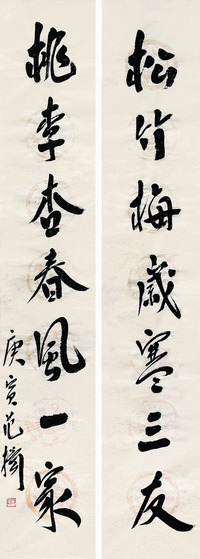 松竹梅歲寒三友
桃李杏春風一家
庚寅范揚